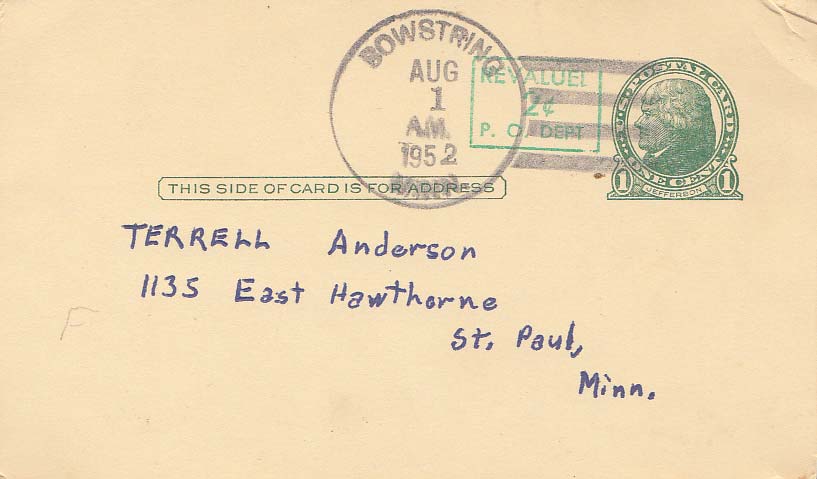 BOWSTRING
AUG
1
A.M.
1952
MINN
REVALUED
2¢
P. O. DEPT
U.S. POSTAL CARD
ONE CENT
1 JEFFERSON 1
THIS SIDE OF CARD IS FOR ADDRESS
TERRELL Anderson
1135 East Hawthorne
St. Paul,
Minn.
F